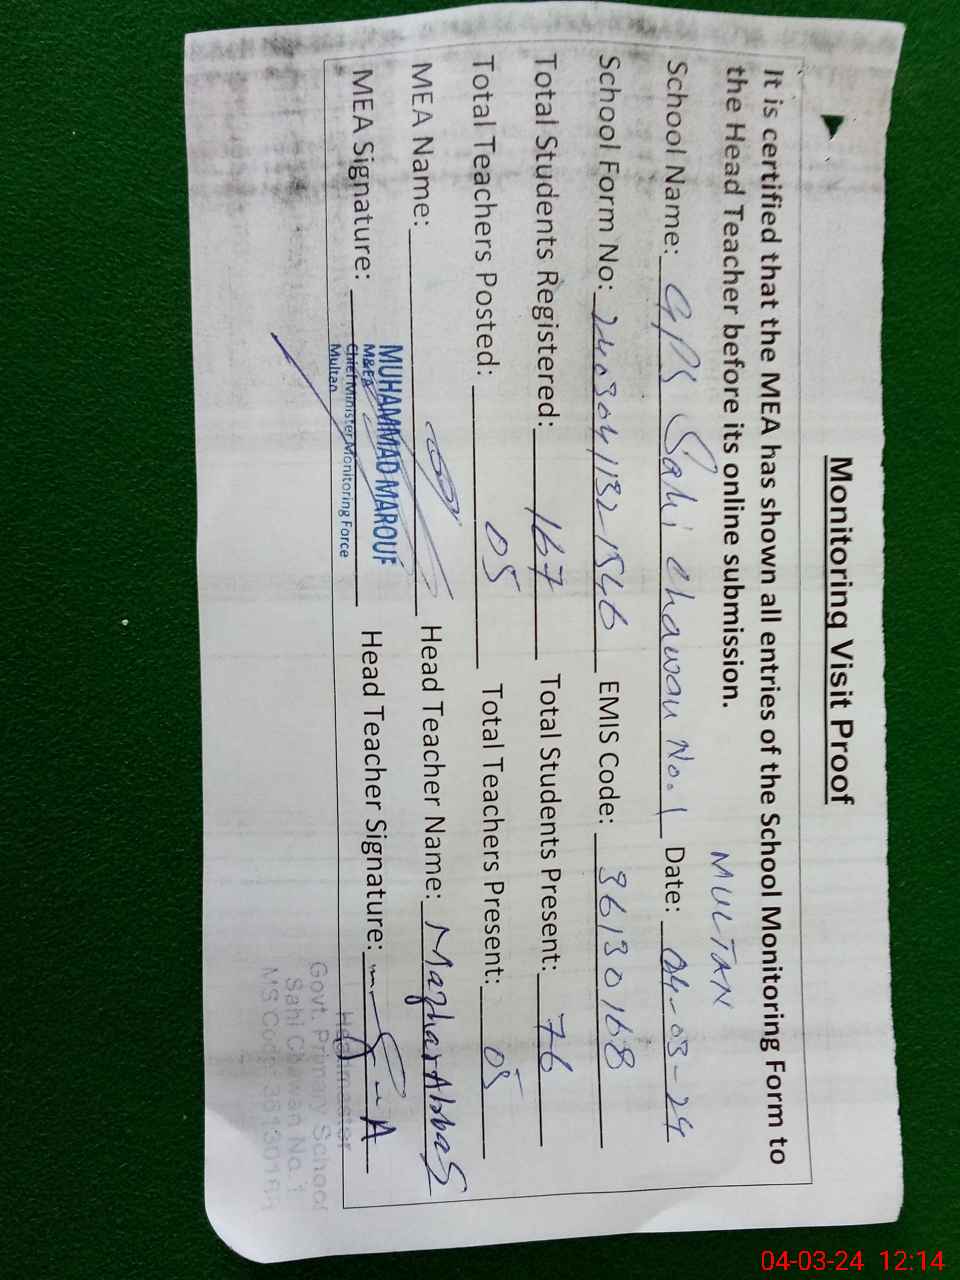 Monitoring Visit Proof
It is certified that the MEA has shown all entries of the School Monitoring Form to
the Head Teacher before its online submission.
MULTAN
School Name: GPS Sahi Chawan No.1 Date: 04-03-24
School Form No: 2403041132-1546 EMIS Code: 36130168
Total Students Registered: 167 Total Students Present: 76
Total Teachers Posted: 05 Total Teachers Present: 05
MEA Name: Head Teacher Name: Mazhar Abbas
MUHAMMAD MAROUF
M&EA
Chief Minister Monitoring Force
Multan
MEA Signature: Head Teacher Signature:
Headmaster
Govt. Primary School
Sahi Chawan No.1
04-03-24 12:14